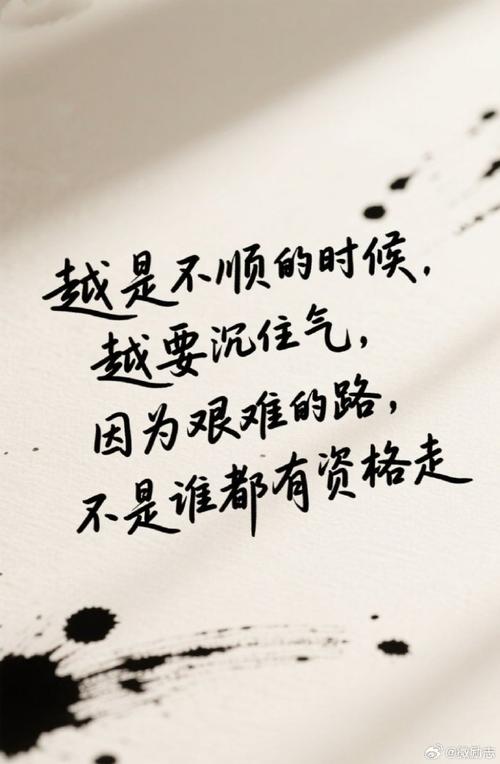 越是不顺的时候，
越要沉住气，
因为艰难的路，
不是谁都有资格走
@微励志